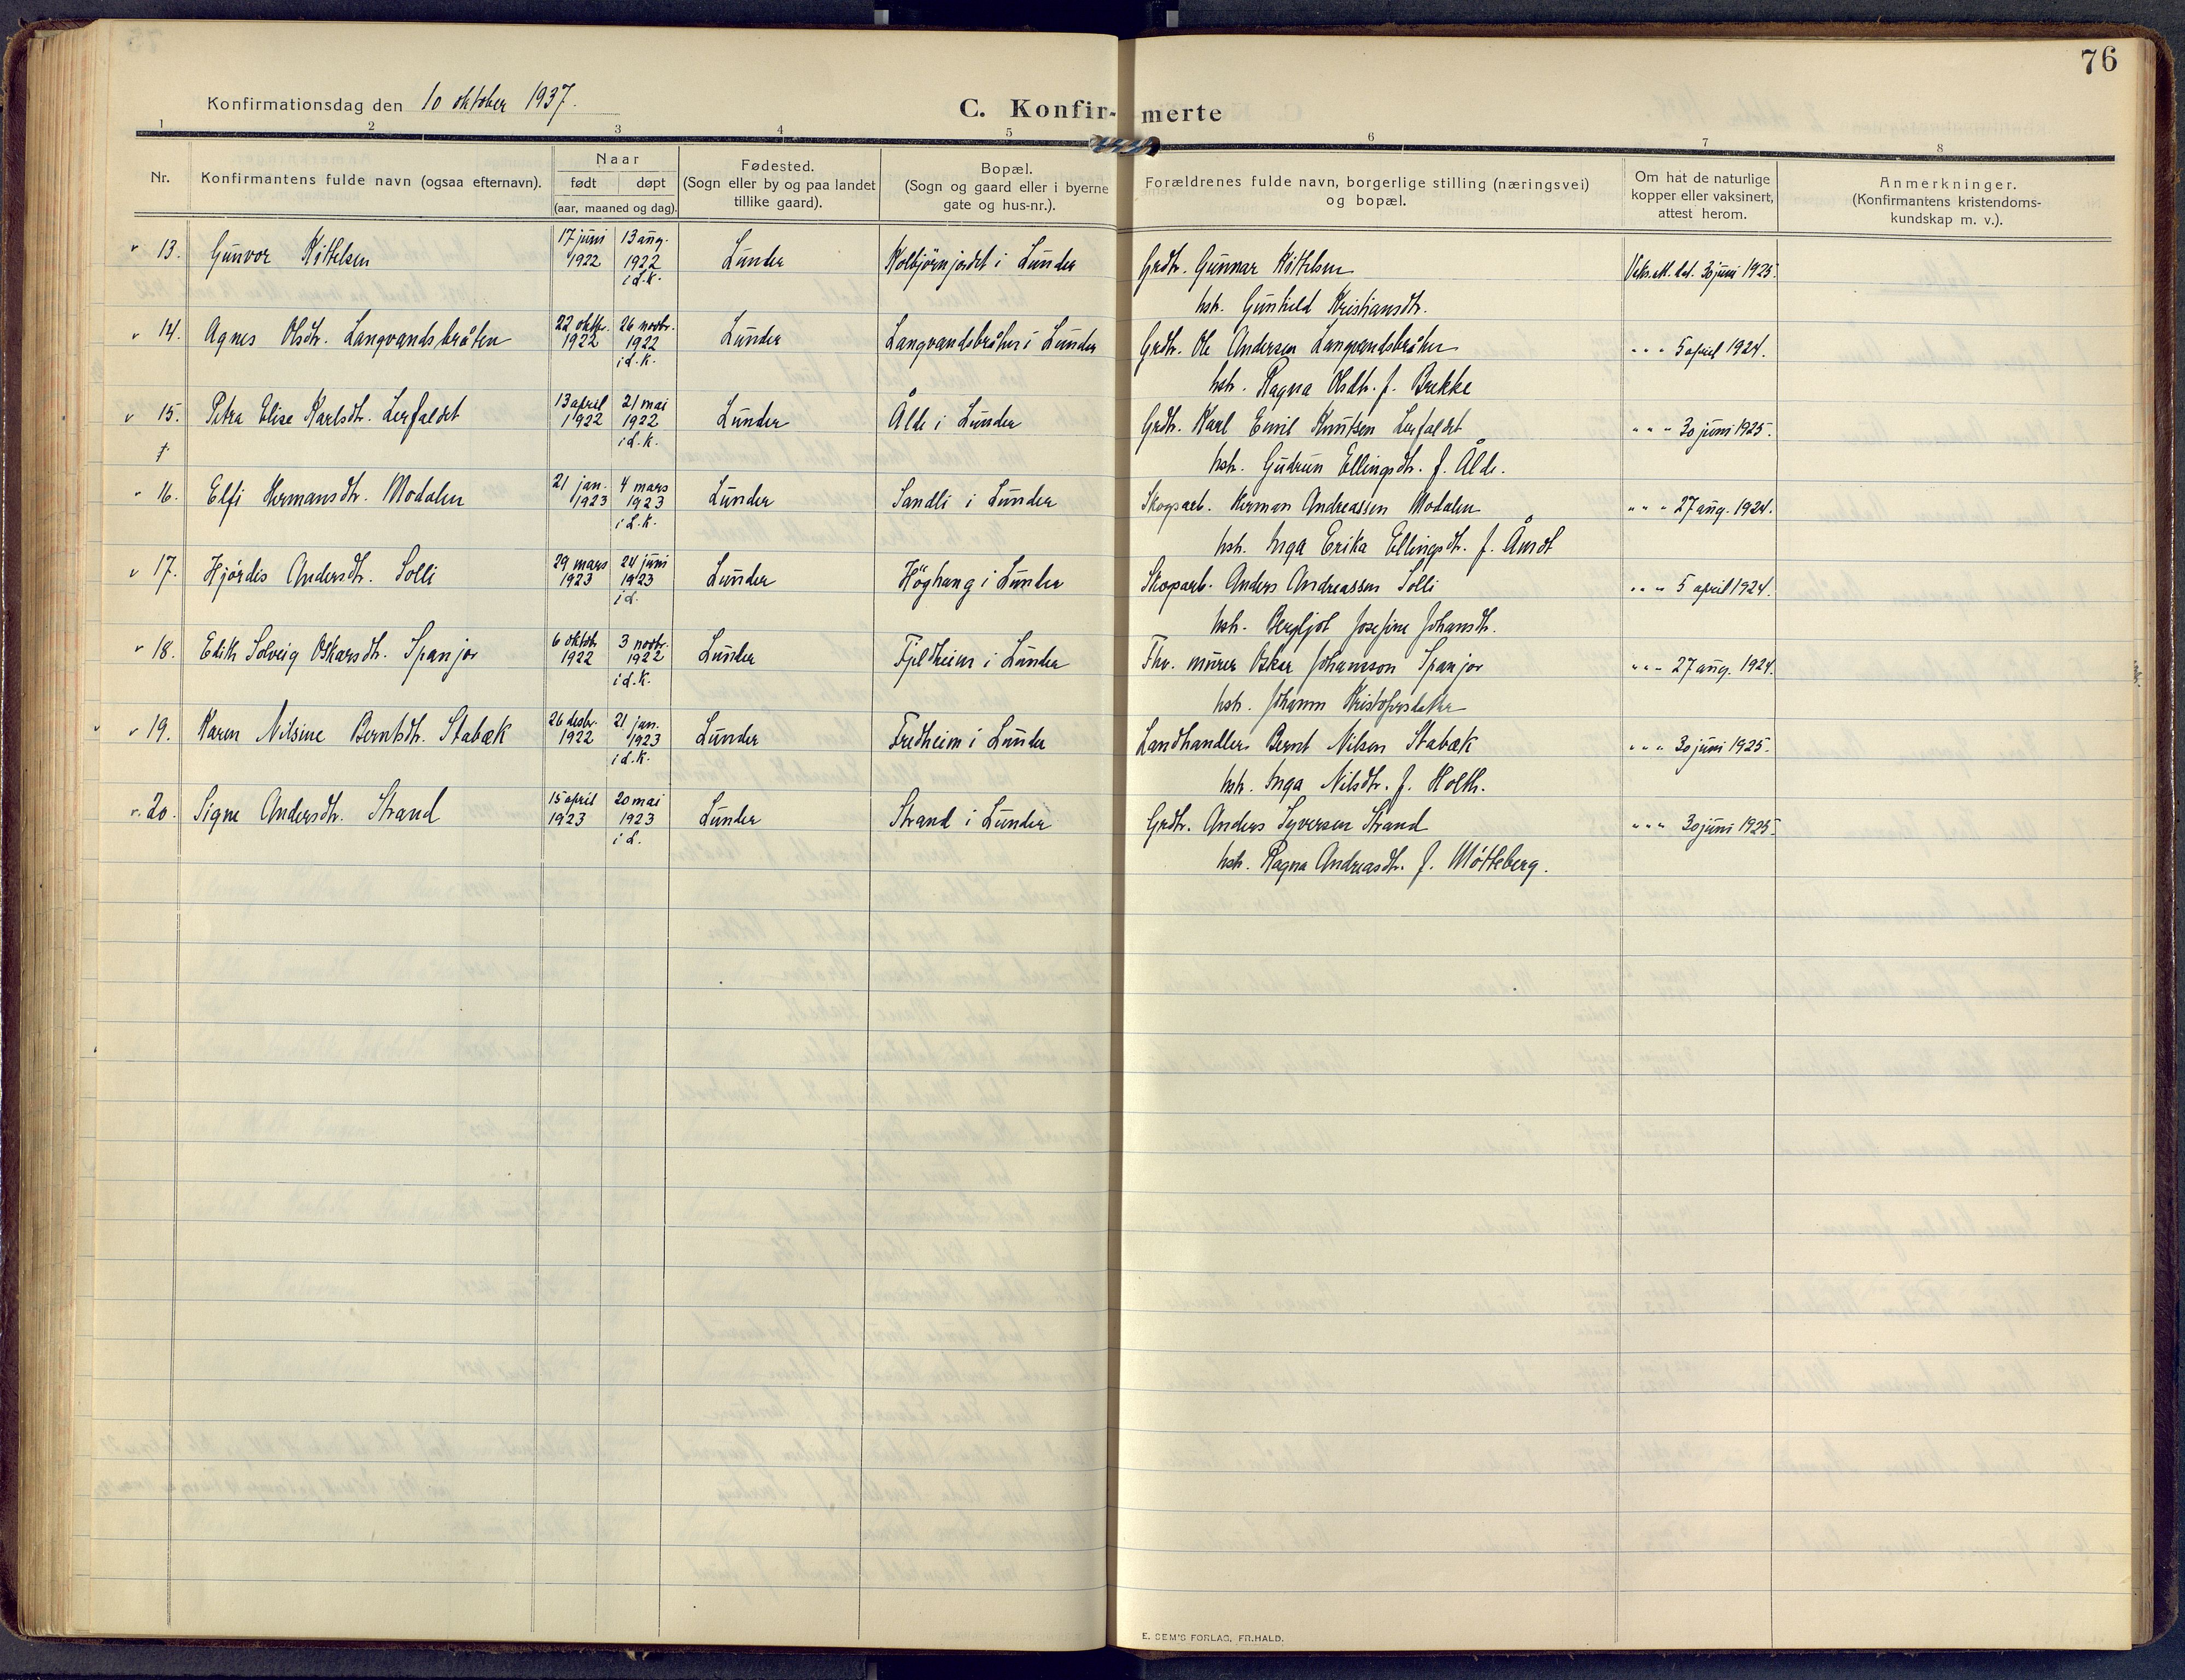 76
Konfirmationsdag den 10 oktober 1937.
C. Konfir- merte
1 2 3 4 5 6 7 8
Nr.
Konfirmantens fulde navn (ogsaa efternavn).
Naar
født døpt
(aar, maaned og dag).
Fødested.
(Sogn eller by og paa landet
tillike gaard).
Bopæl.
(Sogn og gaard eller i byerne
gate og hus-nr.).
Forældrenes fulde navn, borgerlige stilling (næringsvei)
og bopæl.
Om hat de naturlige
kopper eller vaksinert,
attest herom.
Anmerkninger.
(Konfirmantens kristendoms-
kundskap m. v.).
13. Gunvor Kittelsen 17 juni 1922 13 aug. 1922 i L.K. Lunder Kolbjörnjordet i Lunder Grdbr. Gunnar Kittelsen Vaks.att. dat. 30 juni 1925
hstr. Gunhild Kristiansdtr.
14. Agnes Olsdtr. Langvandsbråten 22 oktbr. 1922 26 novbr. 1922 i L.K. Lunder Langvandsbråten i Lunder Grdbr. Ole Andersen Langvandsbråten " " " 5 april 1924.
hstr. Ragna Olsdtr. f. Brekke
15. Petra Elise Karlsdtr. Lerfaldet 13 april 1922 21 mai 1922 i L.K. Lunder Ålde i Lunder Grdbr. Karl Emil Knutsen Lerfaldet " " " 30 juni 1925.
hstr. Gudrun Ellingsdtr. f. Ålde.
16. Elfi Hermansdtr. Modalen 21 jan. 1923 4 mars 1923 i L.K. Lunder Sandli i Lunder Skogsarb. Herman Andreassen Modalen " " " 27 aug. 1924.
hstr. Inga Erika Ellingsdtr. f. Åmot
17. Hjördis Andersdtr. Solli 29 mars 1923 24 juni 1923 i L. Lunder Höghaug i Lunder Skogsarb. Anders Andreassen Solli " " " 5 april 1924.
hstr. Bergljot Josefine Johansdtr.
18. Edith Solveig Oskarsdtr. Spanjor 6 oktbr 1922 3 novbr. 1922 i L.K. Lunder Fjeldheim i Lunder Fhv. murer Oskar Johansson Spanjor " " " 27 aug. 1924.
19. Karen Nilsine Berntsdtr. Stabæk 26 desbr. 1922 21 jan. 1923 i L.K. Lunder Fredheim i Lunder Landhandler Bernt Nilsen Stabæk " " " 30 juni 1925.
hstr. Inga Nilsdtr. f. Holth.
20. Signe Andersdtr. Strand 15 april 1923 20 mai 1923 i L. Lunder Strand i Lunder Grdbr. Anders Syversen Strand " " " 30 juni 1925.
hstr. Ragna Andreasdtr. f. Mötteberg.
E. SEM'S FORLAG, FR.HALD.